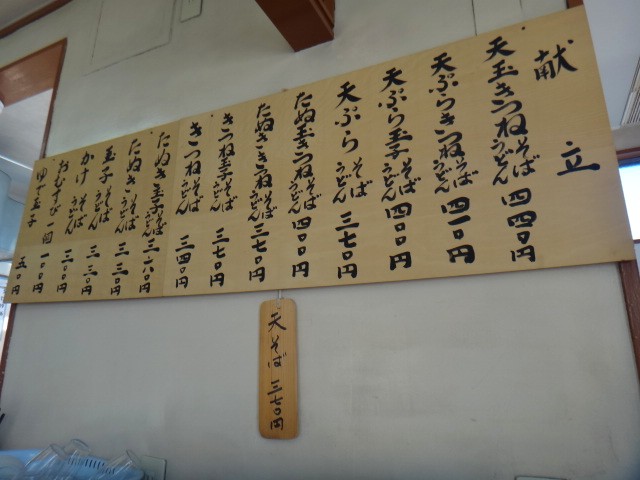 献立
天玉きつねそばうどん 四四〇円
天ぷらきつねそばうどん 四一〇円
天ぷら玉子そばうどん 四〇〇円
天ぷらそばうどん 三七〇円
たぬ玉きつねそばうどん 四〇〇円
たぬききつねそばうどん 三七〇円
きつね玉子そばうどん 三七〇円
きつねそばうどん 三四〇円
たぬき玉子そばうどん 三六〇円
たぬきそばうどん 三三〇円
玉子そばうどん 三三〇円
かけそばうどん 三〇〇円
おむすび一個 一〇〇円
ゆで玉子 五〇円
天そば 三七〇円